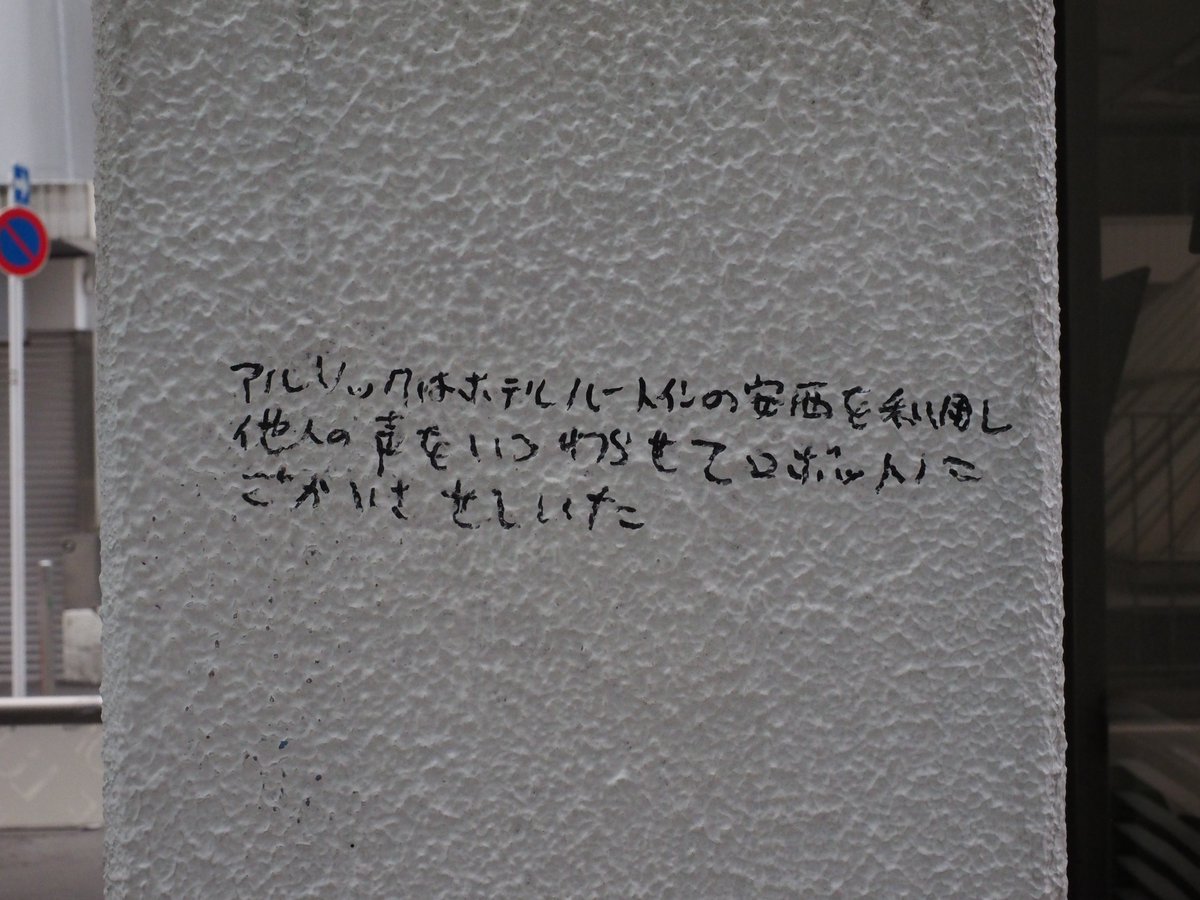 アルソックはホテルルートインの安西を利用し
他人の声をいつわらせてロボットに
ごかいさせていた